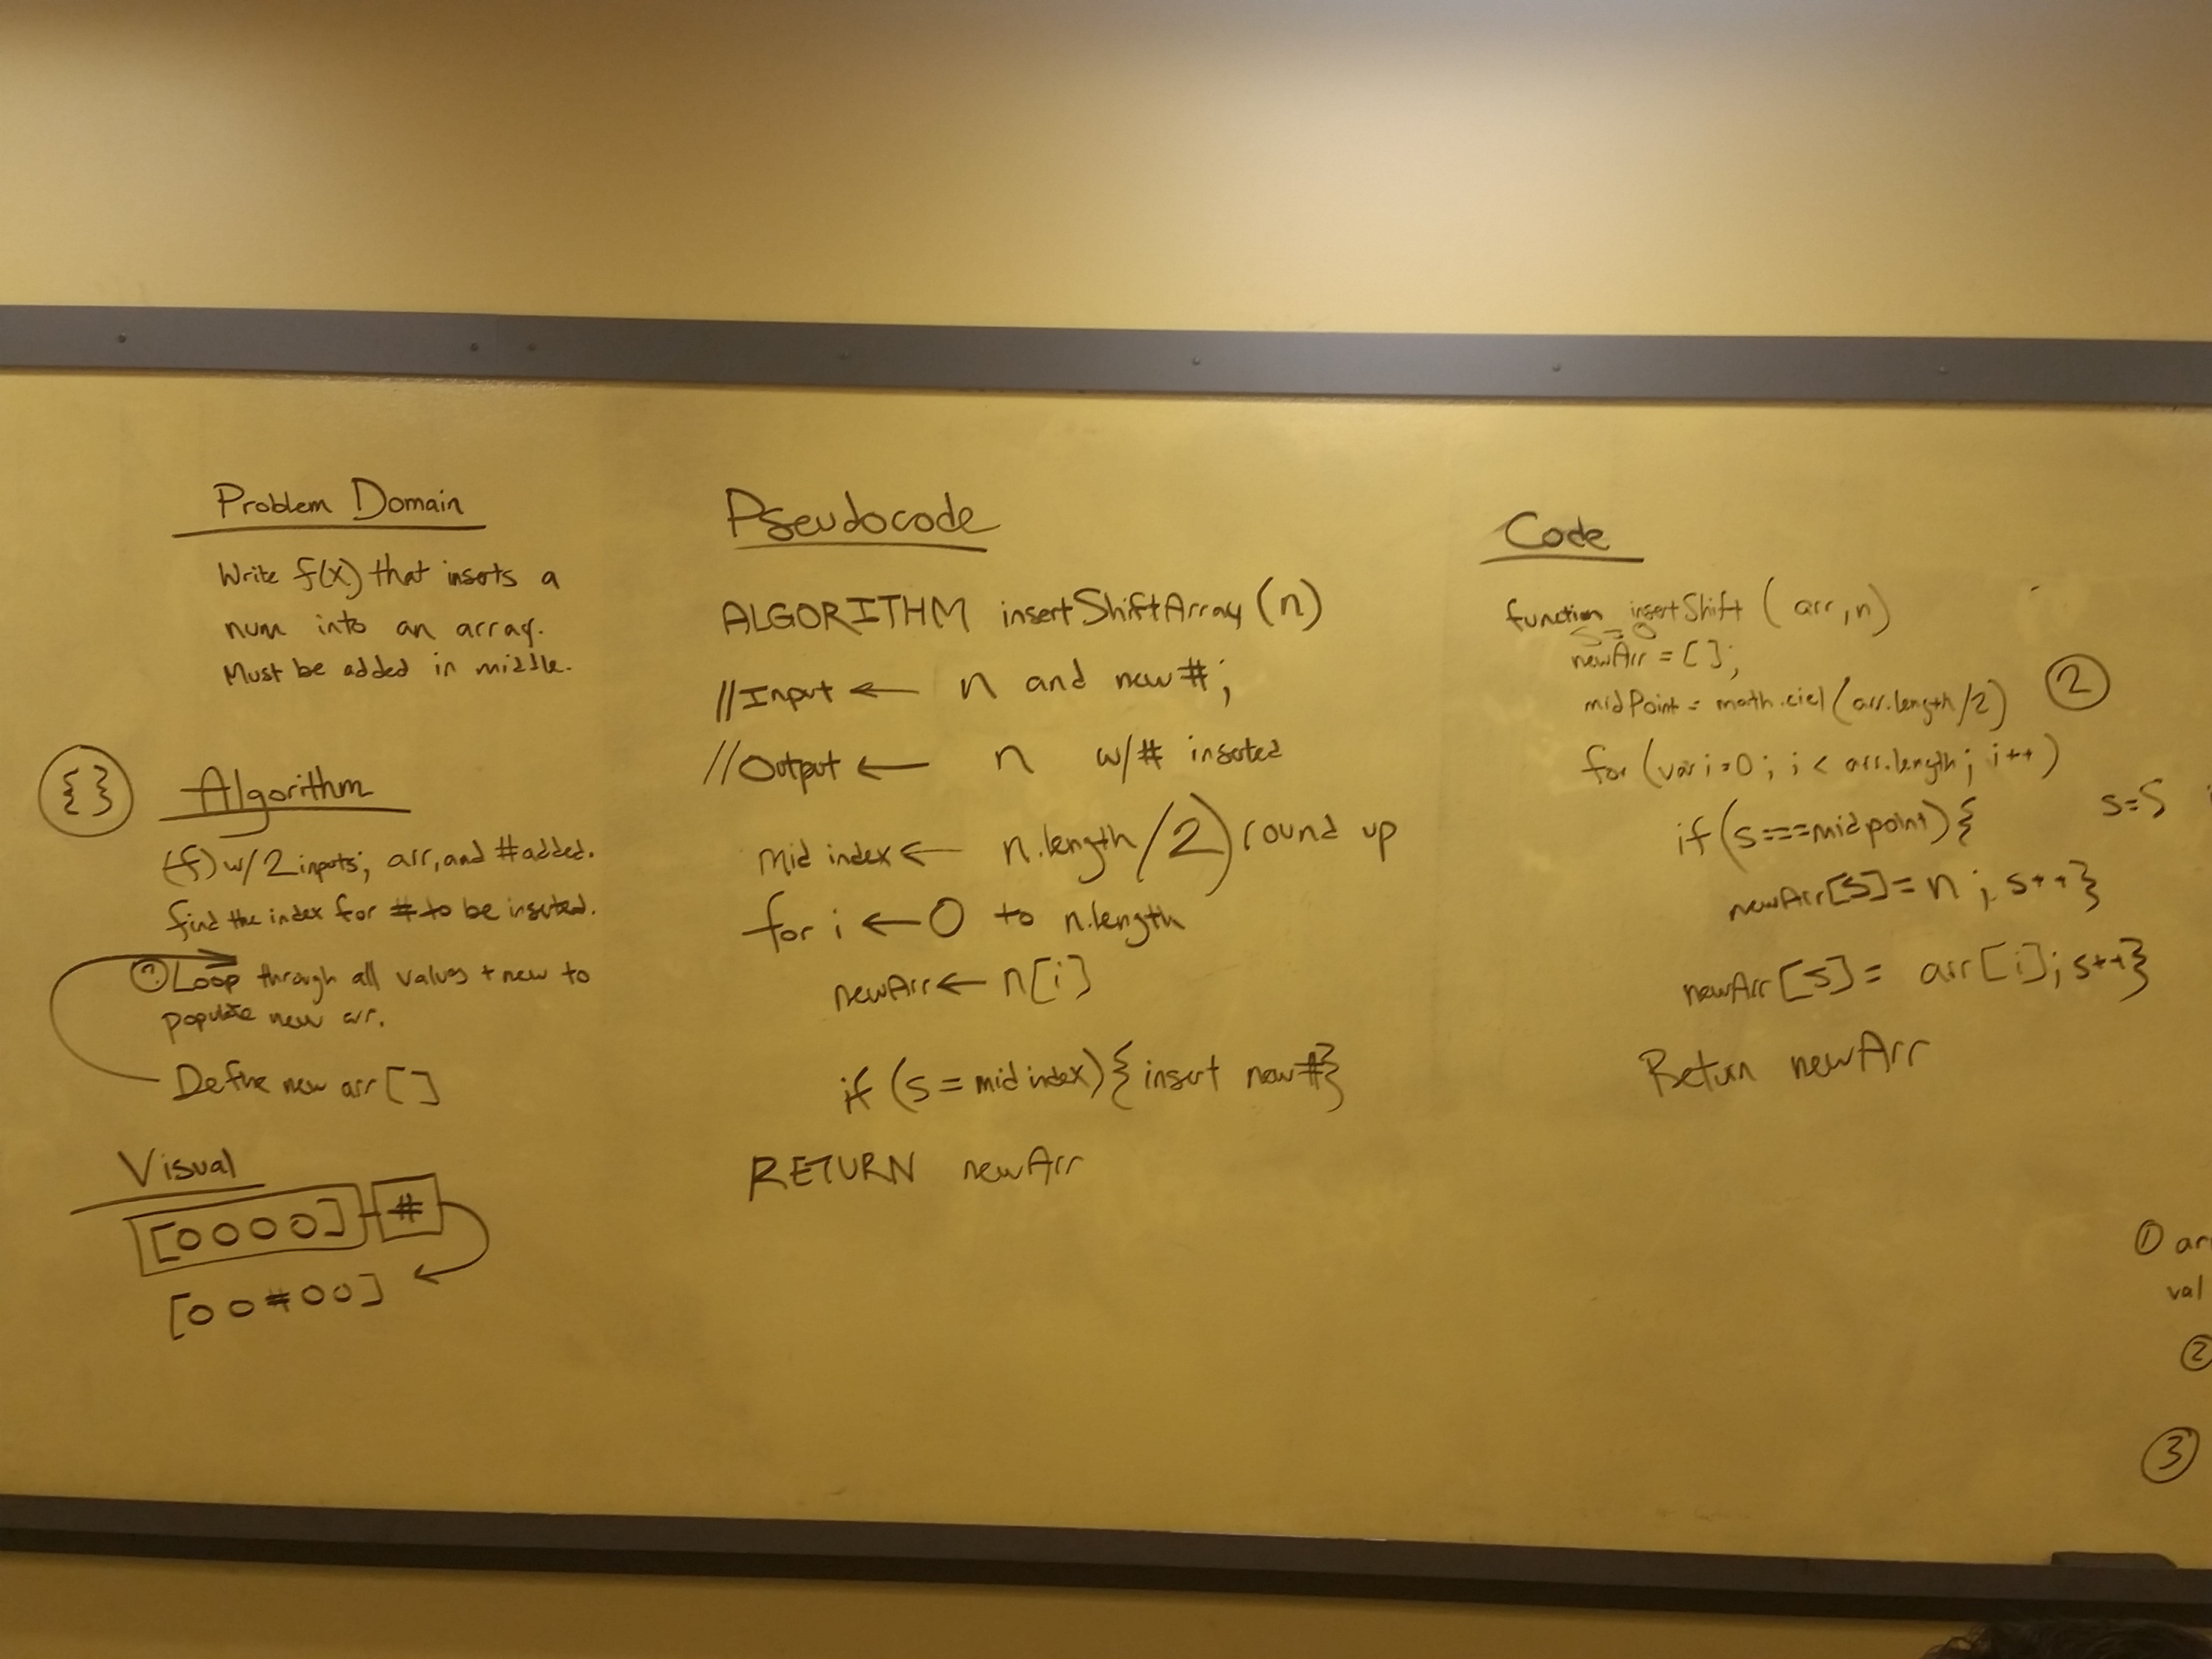 Problem Domain
Write f(x) that inserts a
num into an array.
Must be added in middle.
{ }
Algorithm
(f) w/ 2 inputs; arr, and # added.
find the index for # to be inserted.
Loop through all values + new to
populate new arr.
Define new arr [ ]
Visual
[0000] #
[00#00]
Pseudocode
ALGORITHM insertShiftArray (n)
//Input ← n and new #;
//Output ← n w/# inserted
mid index ← n.length/2) round up
for i ← 0 to n.length
newArr ← n[i]
if (s = mid index) { insert new #}
RETURN newArr
Code
function insertShift (arr, n)
s = 0
newArr = [ ];
midPoint = math.ciel (arr.length/2)
2
for (var i=0; i < arr.length; i++)
if (s===midpoint) {
s=5
newArr[s] = n; s++}
newArr[s] = arr[i]; s++}
Return newArr
① arr
val
②
③